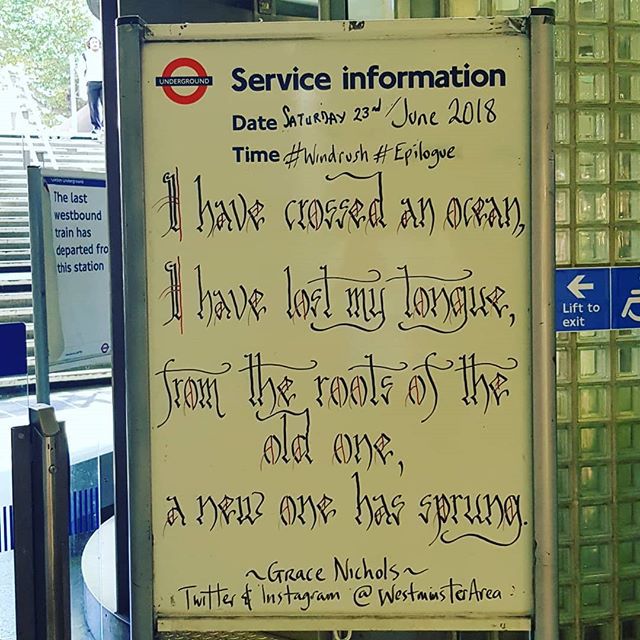 UNDERGROUND
Service information
Date SATURDAY 23rd June 2018
Time #Windrush #Epilogue
I have crossed an ocean,
I have lost my tongue,
from the roots of the
old one,
a new one has sprung.
~GRACE NICHOLS~
Twitter & Instagram @WestminsterArea
The last
westbound
train has
departed fro
this station
Lift to
exit